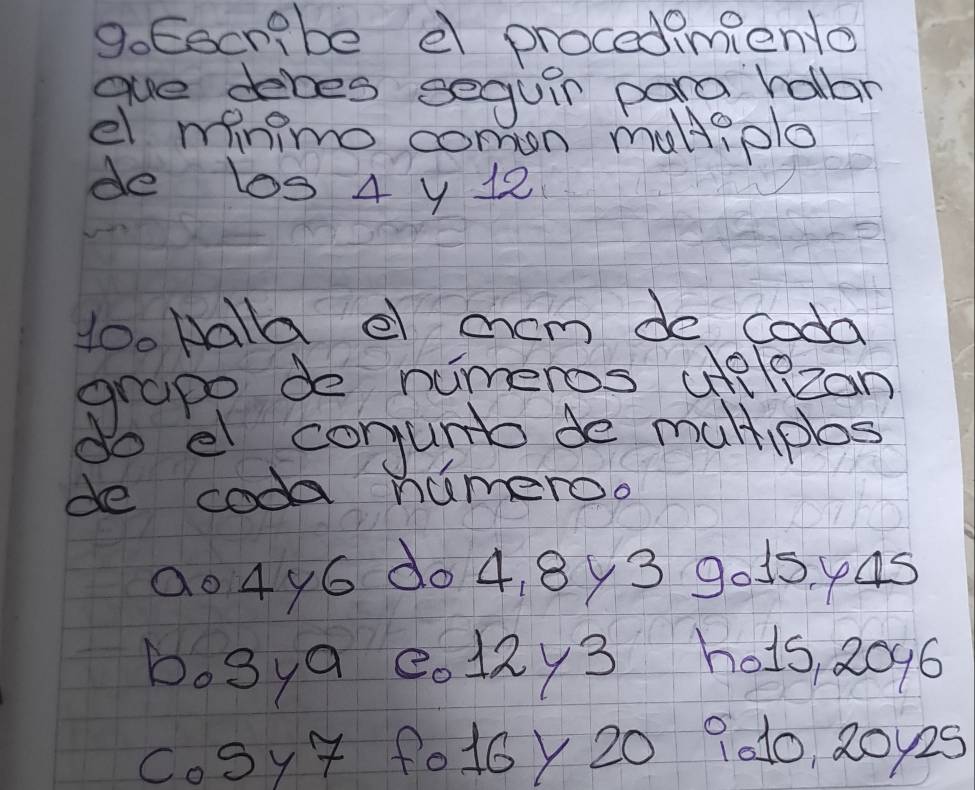 9. Escribe el procedimiento
que debes seguir para hallar
el mínimo común multiplo
de los 4 y 12
10. Halla el mcm de cada
grupo de números utilizan
do el conjunto de multiplos
de cada número.
a. 4 y 6 d. 4, 8 y 3 g. 15. y 45
b. 3 y 9 e. 12 y 3 h. 15, 20 y 6
c. 5 y 7 f. 16 y 20 i. 10, 20 y 25